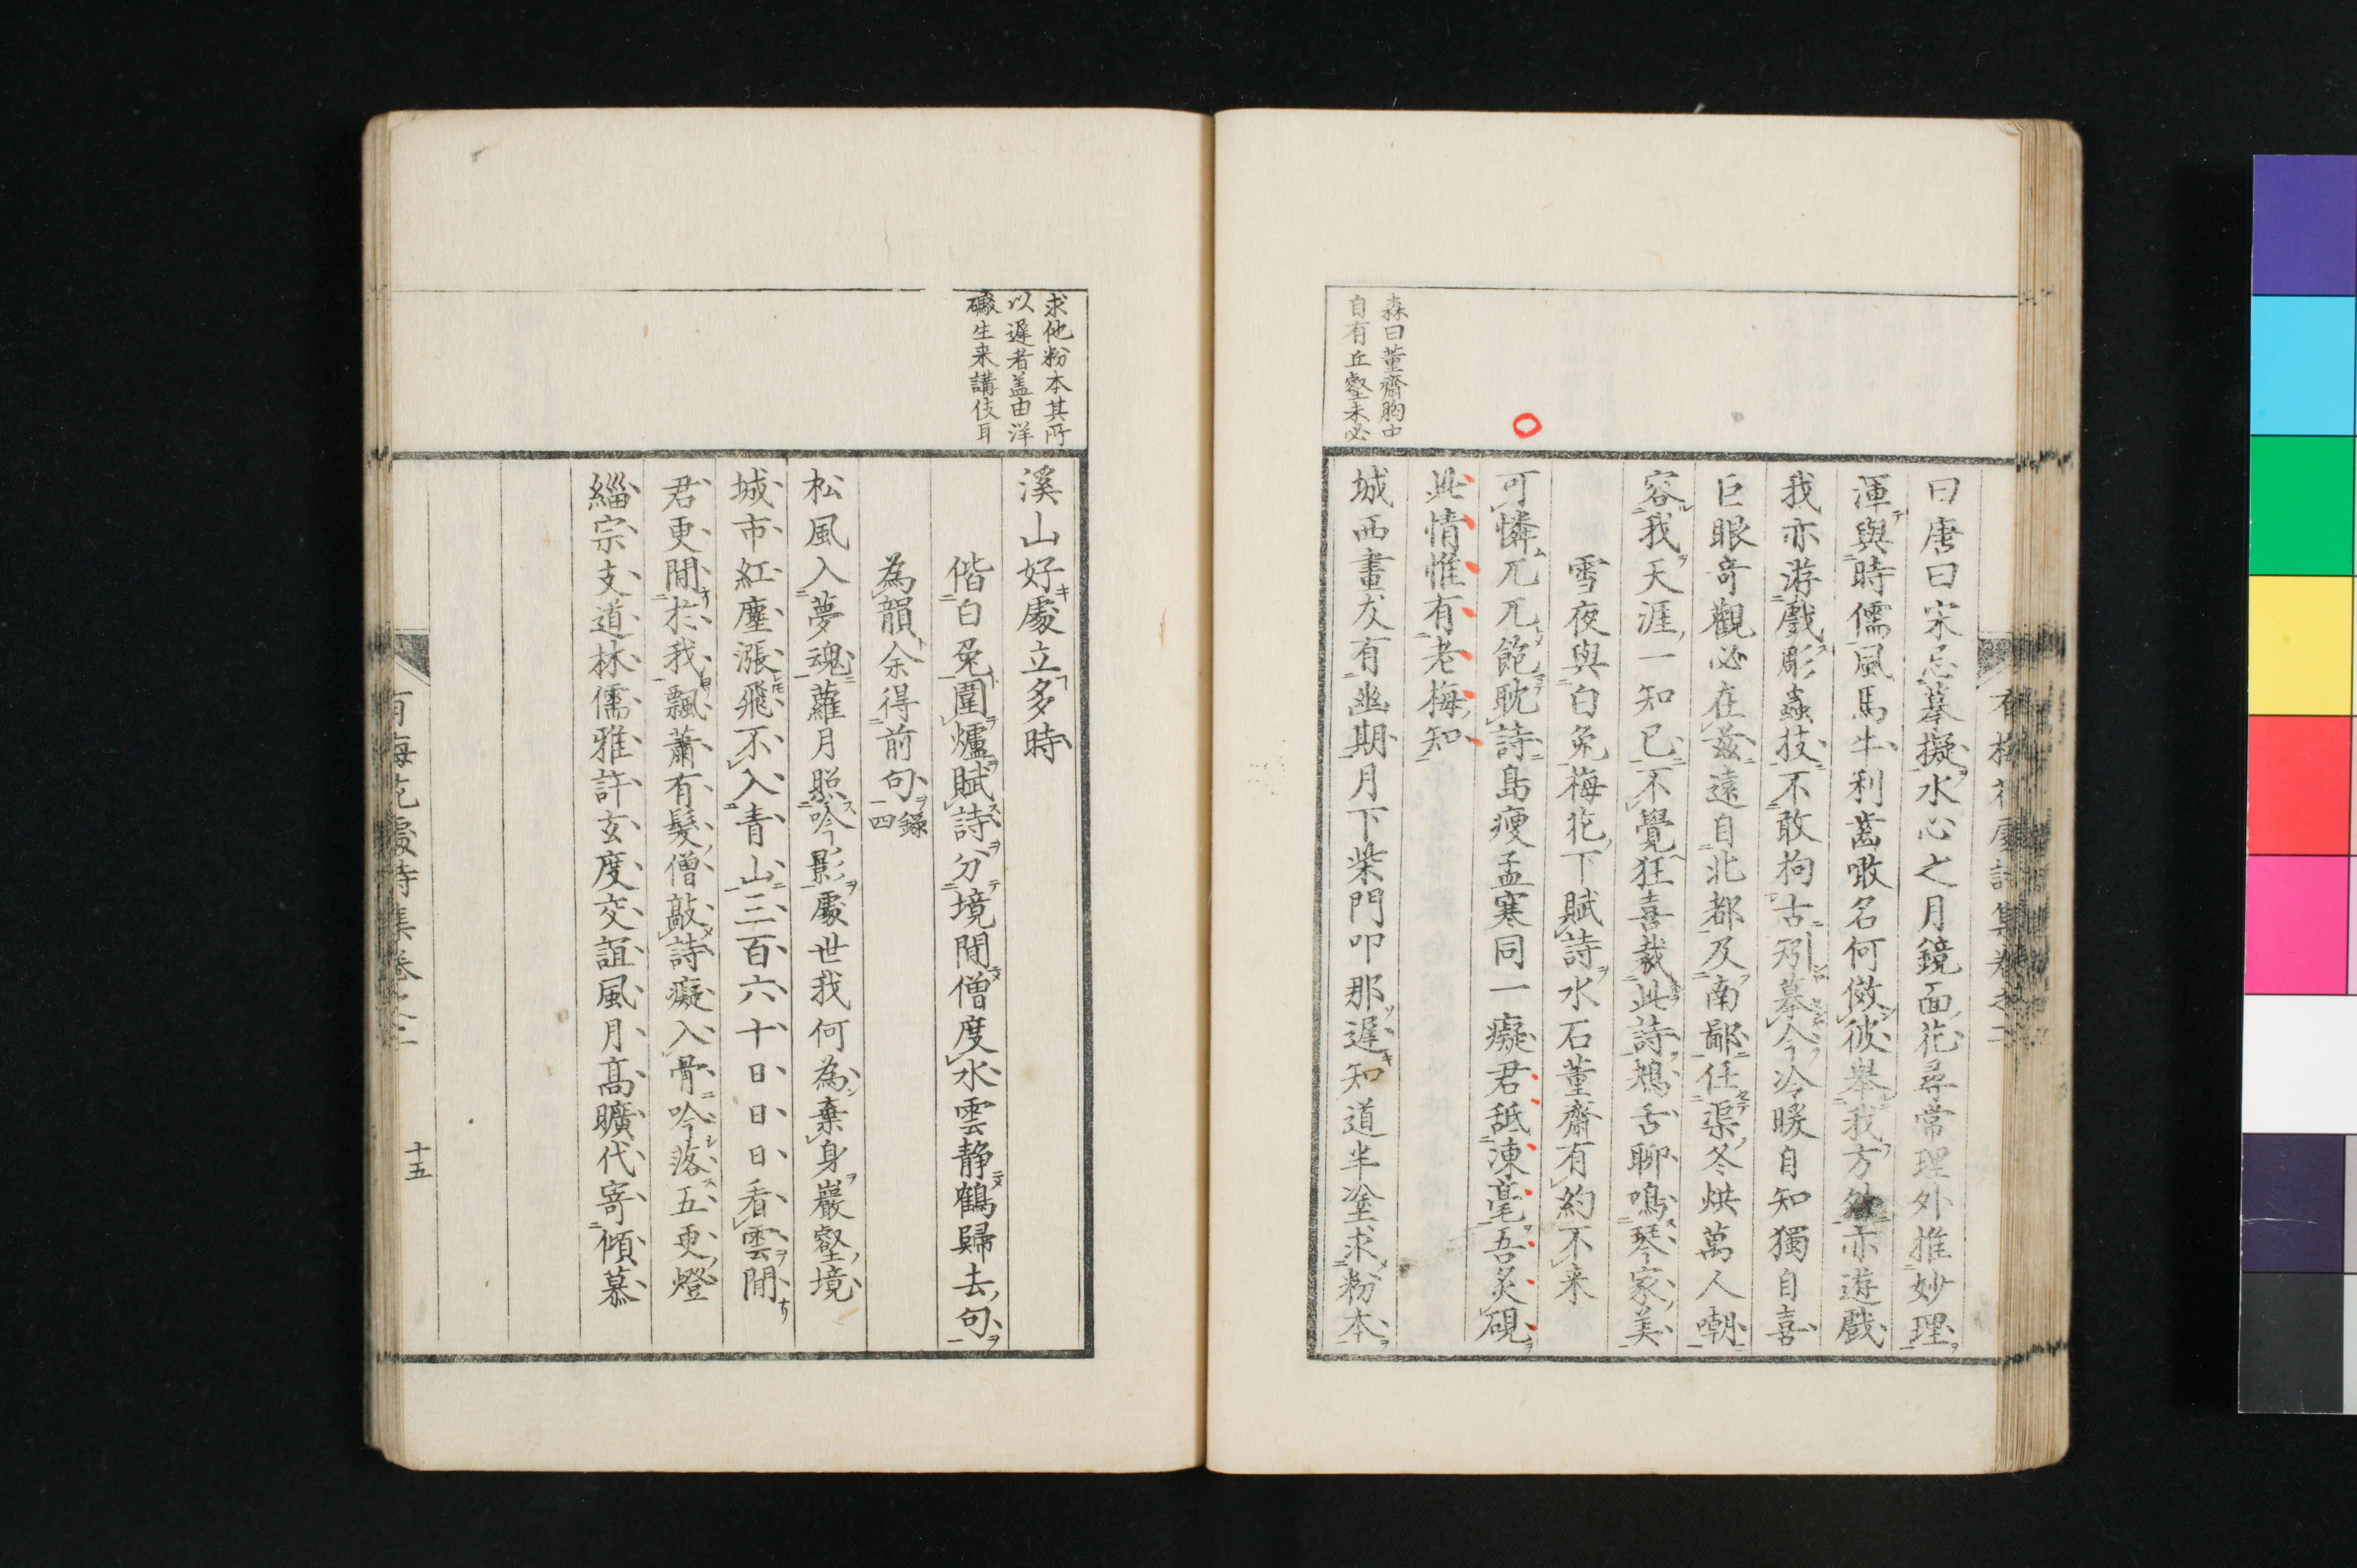 森曰董齋胸中
自有丘壑未必
曰唐曰宋忌摹擬水心之月鏡面花尋常理外推妙理
渾與時儒風馬牛利齒噉名何傚彼舉我方外亦遊戲
我亦游戲彫蟲技不敢拘古矧摹今冷暖自知獨自喜
巨眼奇觀必在茲遠自北都及南鄙任渠冬烘萬人嘲
容我天涯一知己不覺狂喜裁此詩鴂舌聊鳴琴家美
雪夜與白兔梅花下賦詩水石董齋有約不来
可憐兀兀飽耽詩島瘦孟寒同一癡君舐凍毫吾炙硯
此情惟有老梅知
城西畫友有幽期月下柴門叩那遲知道半塗求粉本
求他粉本其所
以遲者盖由洋
礮生来講伎耳
溪山好處立多時
偕白兔圍爐賦詩分境閒僧度水雲静鶴歸去句
為韻余得前句錄四
松風入夢魂蘿月照吟影處世我何為棄身巖壑境
城市紅塵漲飛不入青山三百六十日日日看雲閒
君更閒於我飄蕭有髮僧敲詩癡入骨吟落五更燈
緇宗支道林儒雅許玄度交誼風月高曠代寄傾慕
有梅花處詩集卷之二
十五